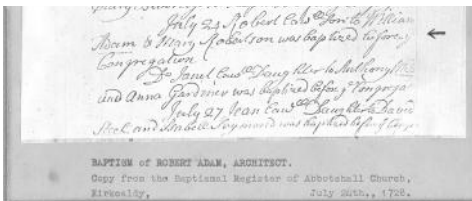 July 24 Robert Law Son to William
Adam & Mary Robertson was baptized before y
Congregation
Do Janet Daughter to Anthony
and Anna Gardner was baptized before y Congrega
July 27 Jean Daughter to David
and Isabell was baptized before y
BAPTISM of ROBERT ADAM, ARCHITECT.
Copy from the Baptismal Register of Abbotshall Church,
Kirkcaldy, July 24th., 1728.